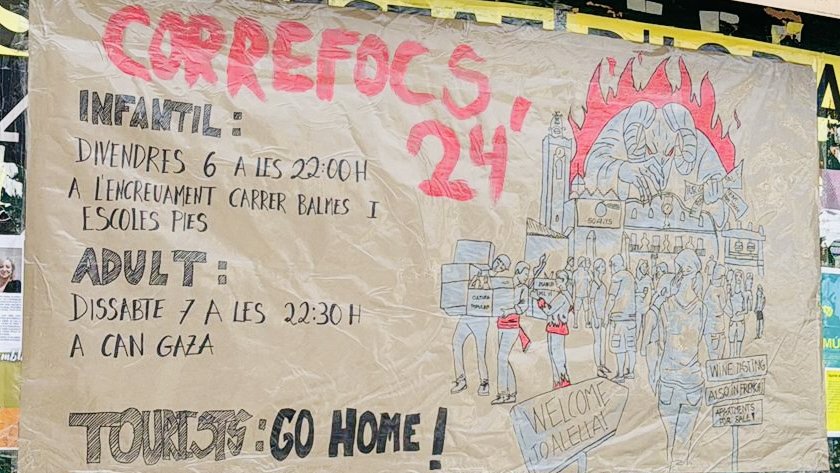 CORREFOCS,
24'
INFANTIL:
DIVENDRES 6 A LES 22:00H
A L'ENCREUAMENT CARRER BALMES I
ESCOLES PIES
ADULT:
DISSABTE 7 A LES 22:30H
A CAN GAZA
TOURISTS: GO HOME!
CULTURA
POPULAR
WELCOME
TO ALELLA!
WINE TASTING
ALSO IN FRENCH
APARTMENTS
FOR SALE!